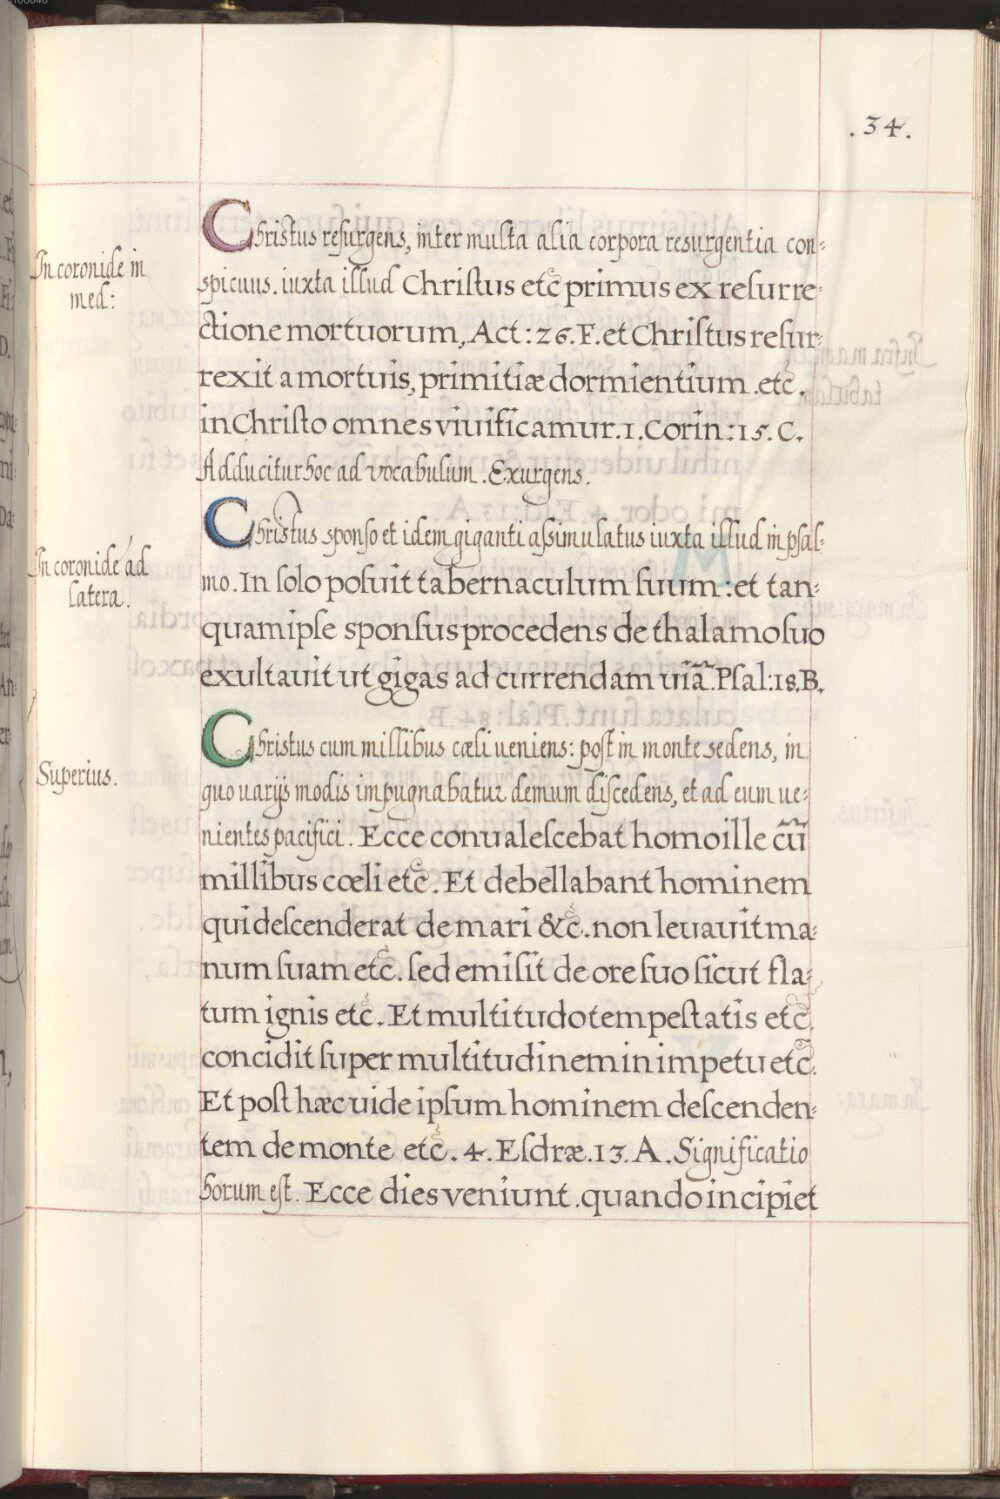 .34.
In coronide in
med:
Christus resurgens, inter multa alia corpora resurgentia con-
spicuus. iuxta illud Christus etc̃ primus ex resurre-
ctione mortuorum, Act: 26. F. et Christus resur-
rexit a mortuis, primitiæ dormientium. etc̃.
in Christo omnes viuificamur. 1. Corin: 15. C.
Adducitur hoc ad vocabulum. Exurgens.
In coronide ad
latera.
Christus sponso et idem giganti assimulatus iuxta illud in psal-
mo. In solo posuit tabernaculum suum: et tan-
quam ipse sponsus procedens de thalamo suo
exultauit ut gigas ad currendam uiã. Psal: 18. B.
Superius.
Christus cum millibus cæli ueniens: post in monte sedens, in
quo uarijs modis impugnabatur demum discedens, et ad eum ue-
nientes pacifici. Ecce conualescebat homo ille cũ
millibus cœli etc̃. Et debellabant hominem
qui descenderat de mari &c̃. non leuauit ma-
num suam etc̃. sed emisit de ore suo sicut fla-
tum ignis etc̃. Et multitudo tempestatis etc̃.
concidit super multitudinem in impetu etc̃.
Et post hæc uide ipsum hominem descenden-
tem de monte etc̃. 4. Esdræ. 13. A. Significatio
horum est. Ecce dies veniunt. quando incipiet